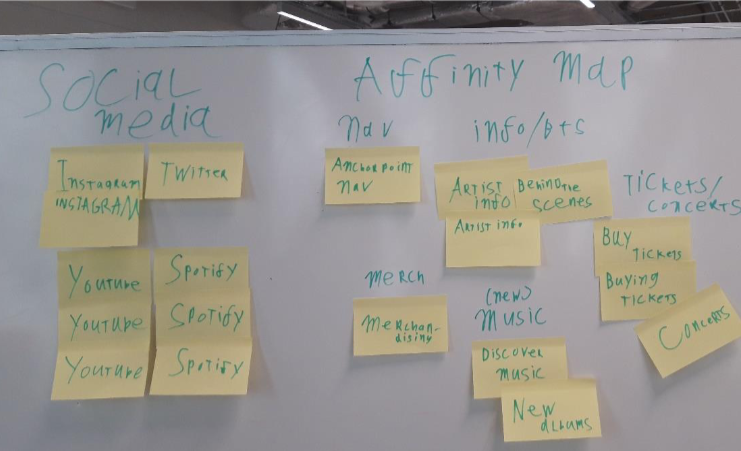 Social
media
Instagram
INSTAGRAM
Twitter
Youtube
Youtube
Youtube
Spotify
Spotify
Spotify
Affinity Map
Nav
Anchorpoint
nav
info/bts
Artist
info
Behind the
scenes
Artist info
Tickets/
concerts
Buy
Tickets
Buying
Tickets
Concerts
Merch
Merchan-
dising
(new)
Music
Discover
music
New
albums